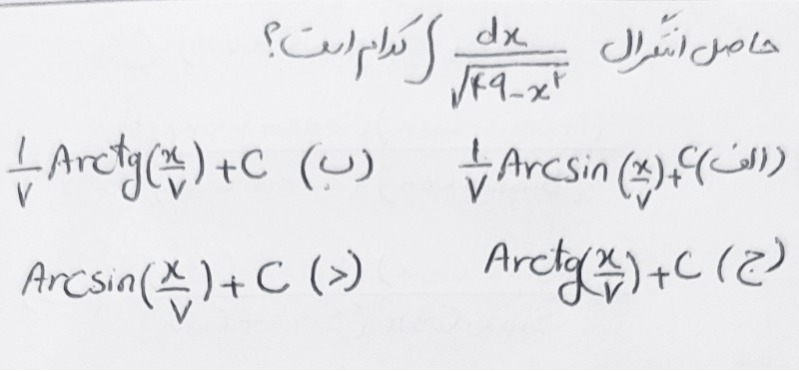 حاصل انتگرال ∫ dx/√(۴۹-x²) کدام است؟
الف) ۱/۷ Arcsin(x/۷)+C ب) ۱/۷ Arctg(x/۷)+C
ج) Arctg(x/۷)+C د) Arcsin(x/۷)+C